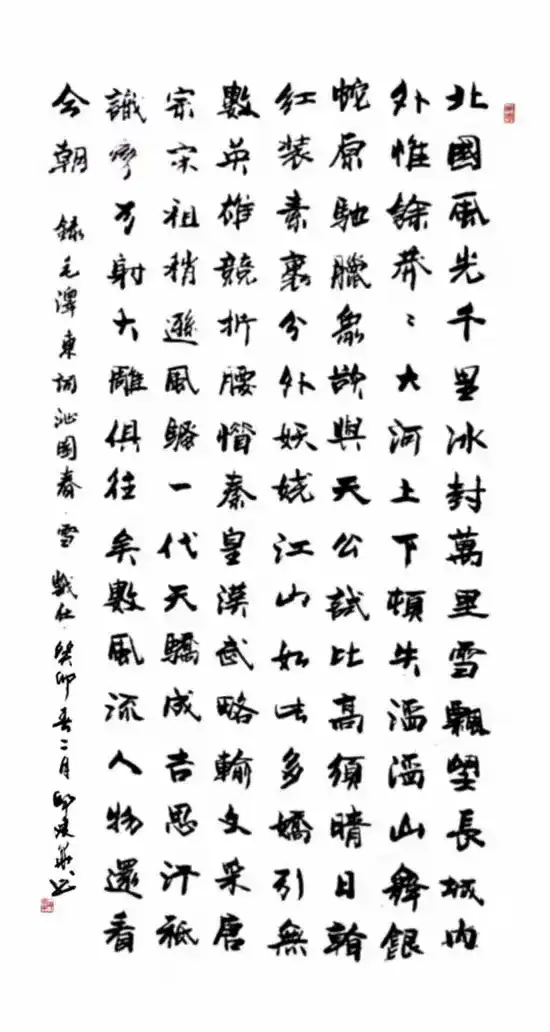 北國風光千里冰封萬里雪飄望長城內
外惟餘莽〻大河上下頓失滔滔山舞銀
蛇原馳臘象欲與天公試比高須晴日看
紅装素裹分外妖嬈江山如此多嬌引無
數英雄競折腰惜秦皇漢武略輸文采唐
宗宋祖稍遜風騷一代天驕成吉思汗祇
識彎弓射大雕俱往矣數風流人物還看
今朝 錄毛澤東詞沁園春·雪 癸卯春二月邱